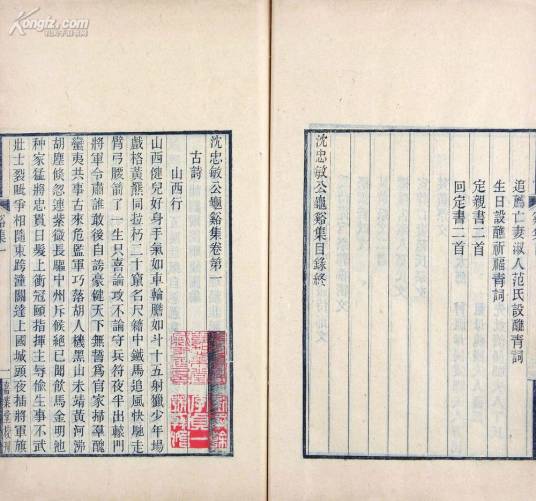 Kongfz.com
孔夫子旧书网
追薦亡妻淑人范氏設醮青詞
生日設醮祈福青詞
定親書二首
回定書二首
沈忠敏公龜谿集目錄終
沈忠敏公龜谿集卷第一
古詩
山西行
山西健兒好身手氣如車輪膽如斗十五射獵少年場
戲格黃熊同拉朽二十竄名尺籍中鐵馬追風快馳走
臂弓腰箭了一生只喜論攻不論守兵符夜半出轅門
將軍令肅誰敢後自誇豪健天下無誓爲官家掃羣醜
蠻夷共事古來危監軍巧落胡人機黑山未靖黃河沸
胡塵倏忽連紫微長驅中州斥候絕已聞飲馬金明池
种家猛將忠貫日髮上衝冠頤指揮主辱偷生事不武
壯士裂眦爭相隨東跨潼關達上國城頭夜插將軍旗
谿集一